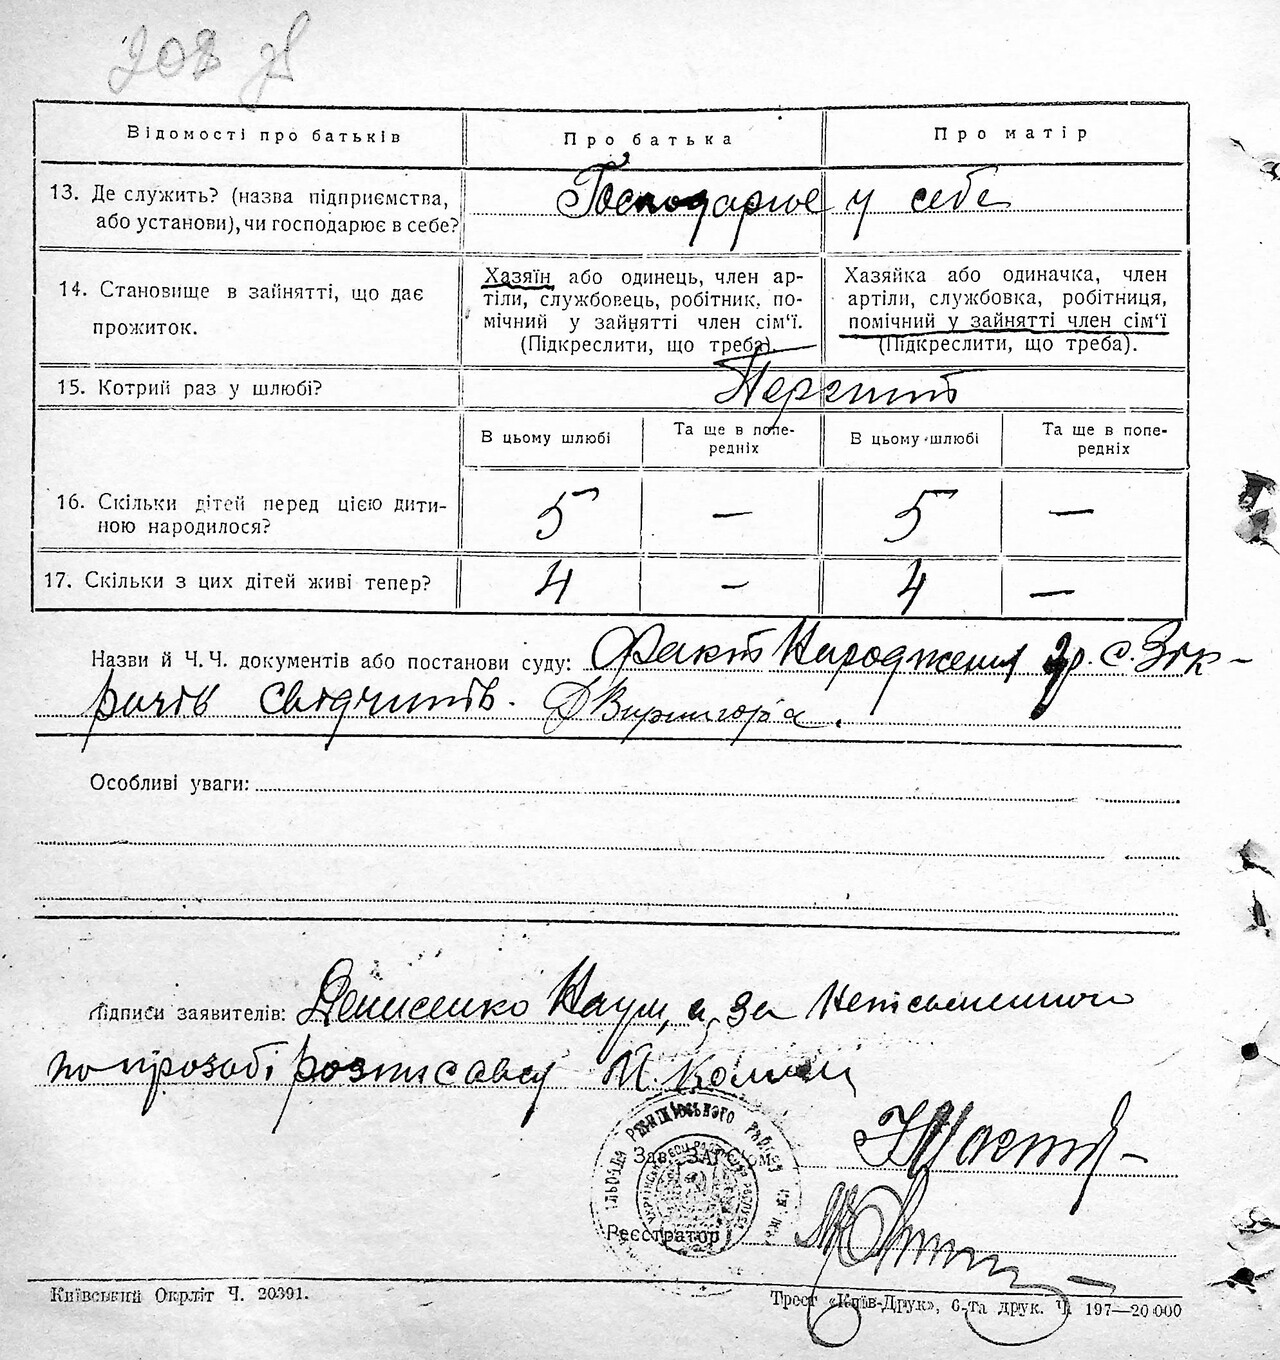 208 зв
Відомості про батьків
Про батька
Про матір
13. Де служить? (назва підприємства,
або установи), чи господарює в себе?
Господарює у себе
14. Становище в зайнятті, що дає
прожиток.
Хазяїн або одинець, член ар-
тіли, службовець, робітник, по-
мічний у зайнятті член сім'ї.
(Підкреслити, що треба).
Хазяйка або одиначка, член
артіли, службовка, робітниця,
помічний у зайнятті член сім'ї
(Підкреслити, що треба).
15. Котрий раз у шлюбі?
В цьому шлюбі
Та ще в попе-
редніх
В цьому шлюбі
Та ще в попе-
редніх
16. Скільки дітей перед цією дити-
ною народилося?
5 — 5 —
17. Скільки з цих дітей живі тепер?
4 — 4 —
Назви й Ч. Ч. документів або постанови суду: Факт Народження
свідчить.
Особливі уваги:
Підписи заявителів: Денисенко Наум, а за
по прозьбі розписався
Зав. ЗАГСом
Реєстратор
Київський Окрліт Ч. 20391.
Трест «Київ-Друк», 6-та друк. Ч. 197—20 000